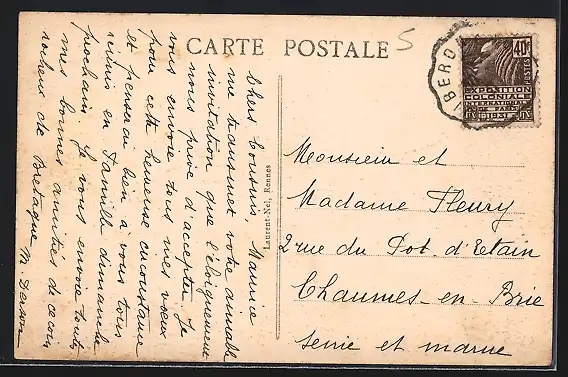 CARTE POSTALE
5
Chers Cousins Maurice
me transmet votre aimable
invitation que l'éloignement
nous prive d'accepter. Je
vous envoie tous mes vœux
pour cette heureuse circonstance
et penserai bien à vous tous
réunis en famille dimanche
prochain. Je vous envoie toutes
mes bonnes amitiés de ce coin
rocheux de Bretagne M.
Laurent-Nel, Rennes
40c
POSTES
EXPOSITION
COLONIALE
INTERNATIONALE
PARIS 1931
Monsieur et
Madame Fleury
2 rue du Pot d'Etain
Chaumes-en-Brie
Seine et marne